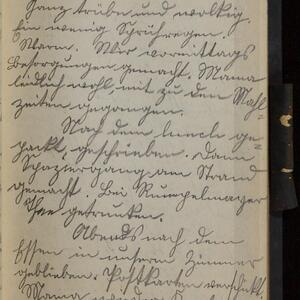 Ganz trübe und wolkig.
Ein wenig Sprühregen.
Warm. Nur vormittags
Besorgungen gemacht. Mama
leidlich wohl, mit zu den Mahl-
zeiten gegangen.
Nach dem lunch ge-
packt, geschrieben. Dann
Spaziergang am Strand
gemacht. Bei Rumpelmayer
Thee getrunken.
Abends nach dem
Essen in unserm Zimmer
geblieben. Postkarten verschickt.
Mama